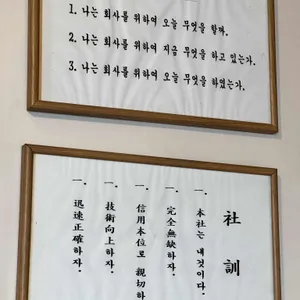 1. 나는 회사를 위하여 오늘 무엇을 할까.
2. 나는 회사를 위하여 지금 무엇을 하고 있는가.
3. 나는 회사를 위하여 오늘 무엇을 하였는가.
社訓
一. 本社는 내것이다
一. 完全無缺하자.
一. 信用本位로 親切하
一. 技術向上하자.
一. 迅速正確하자.